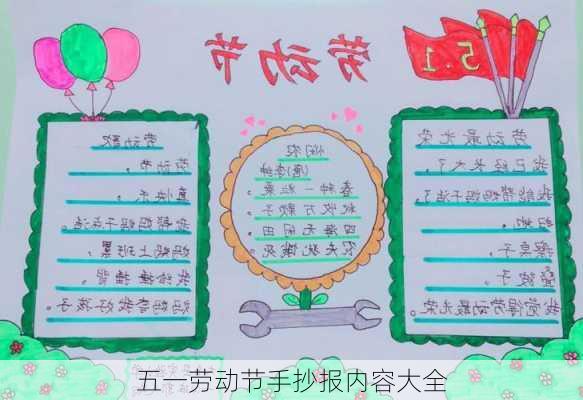 劳动节
5.1
劳动最光荣
我已经长大了，
我能帮妈妈干活了。
扫地
擦桌子、
叠被子、
我觉得劳动最光荣。
悯农
李绅
春种一粒粟，
秋收万颗子。
四海无闲田，
农夫犹饿死。
劳动歌
劳动节，
真快乐，
我帮妈妈干点活。
妈妈上班累，
我给捶捶背。
妈妈夸我好孩子。
五一劳动节手抄报内容大全